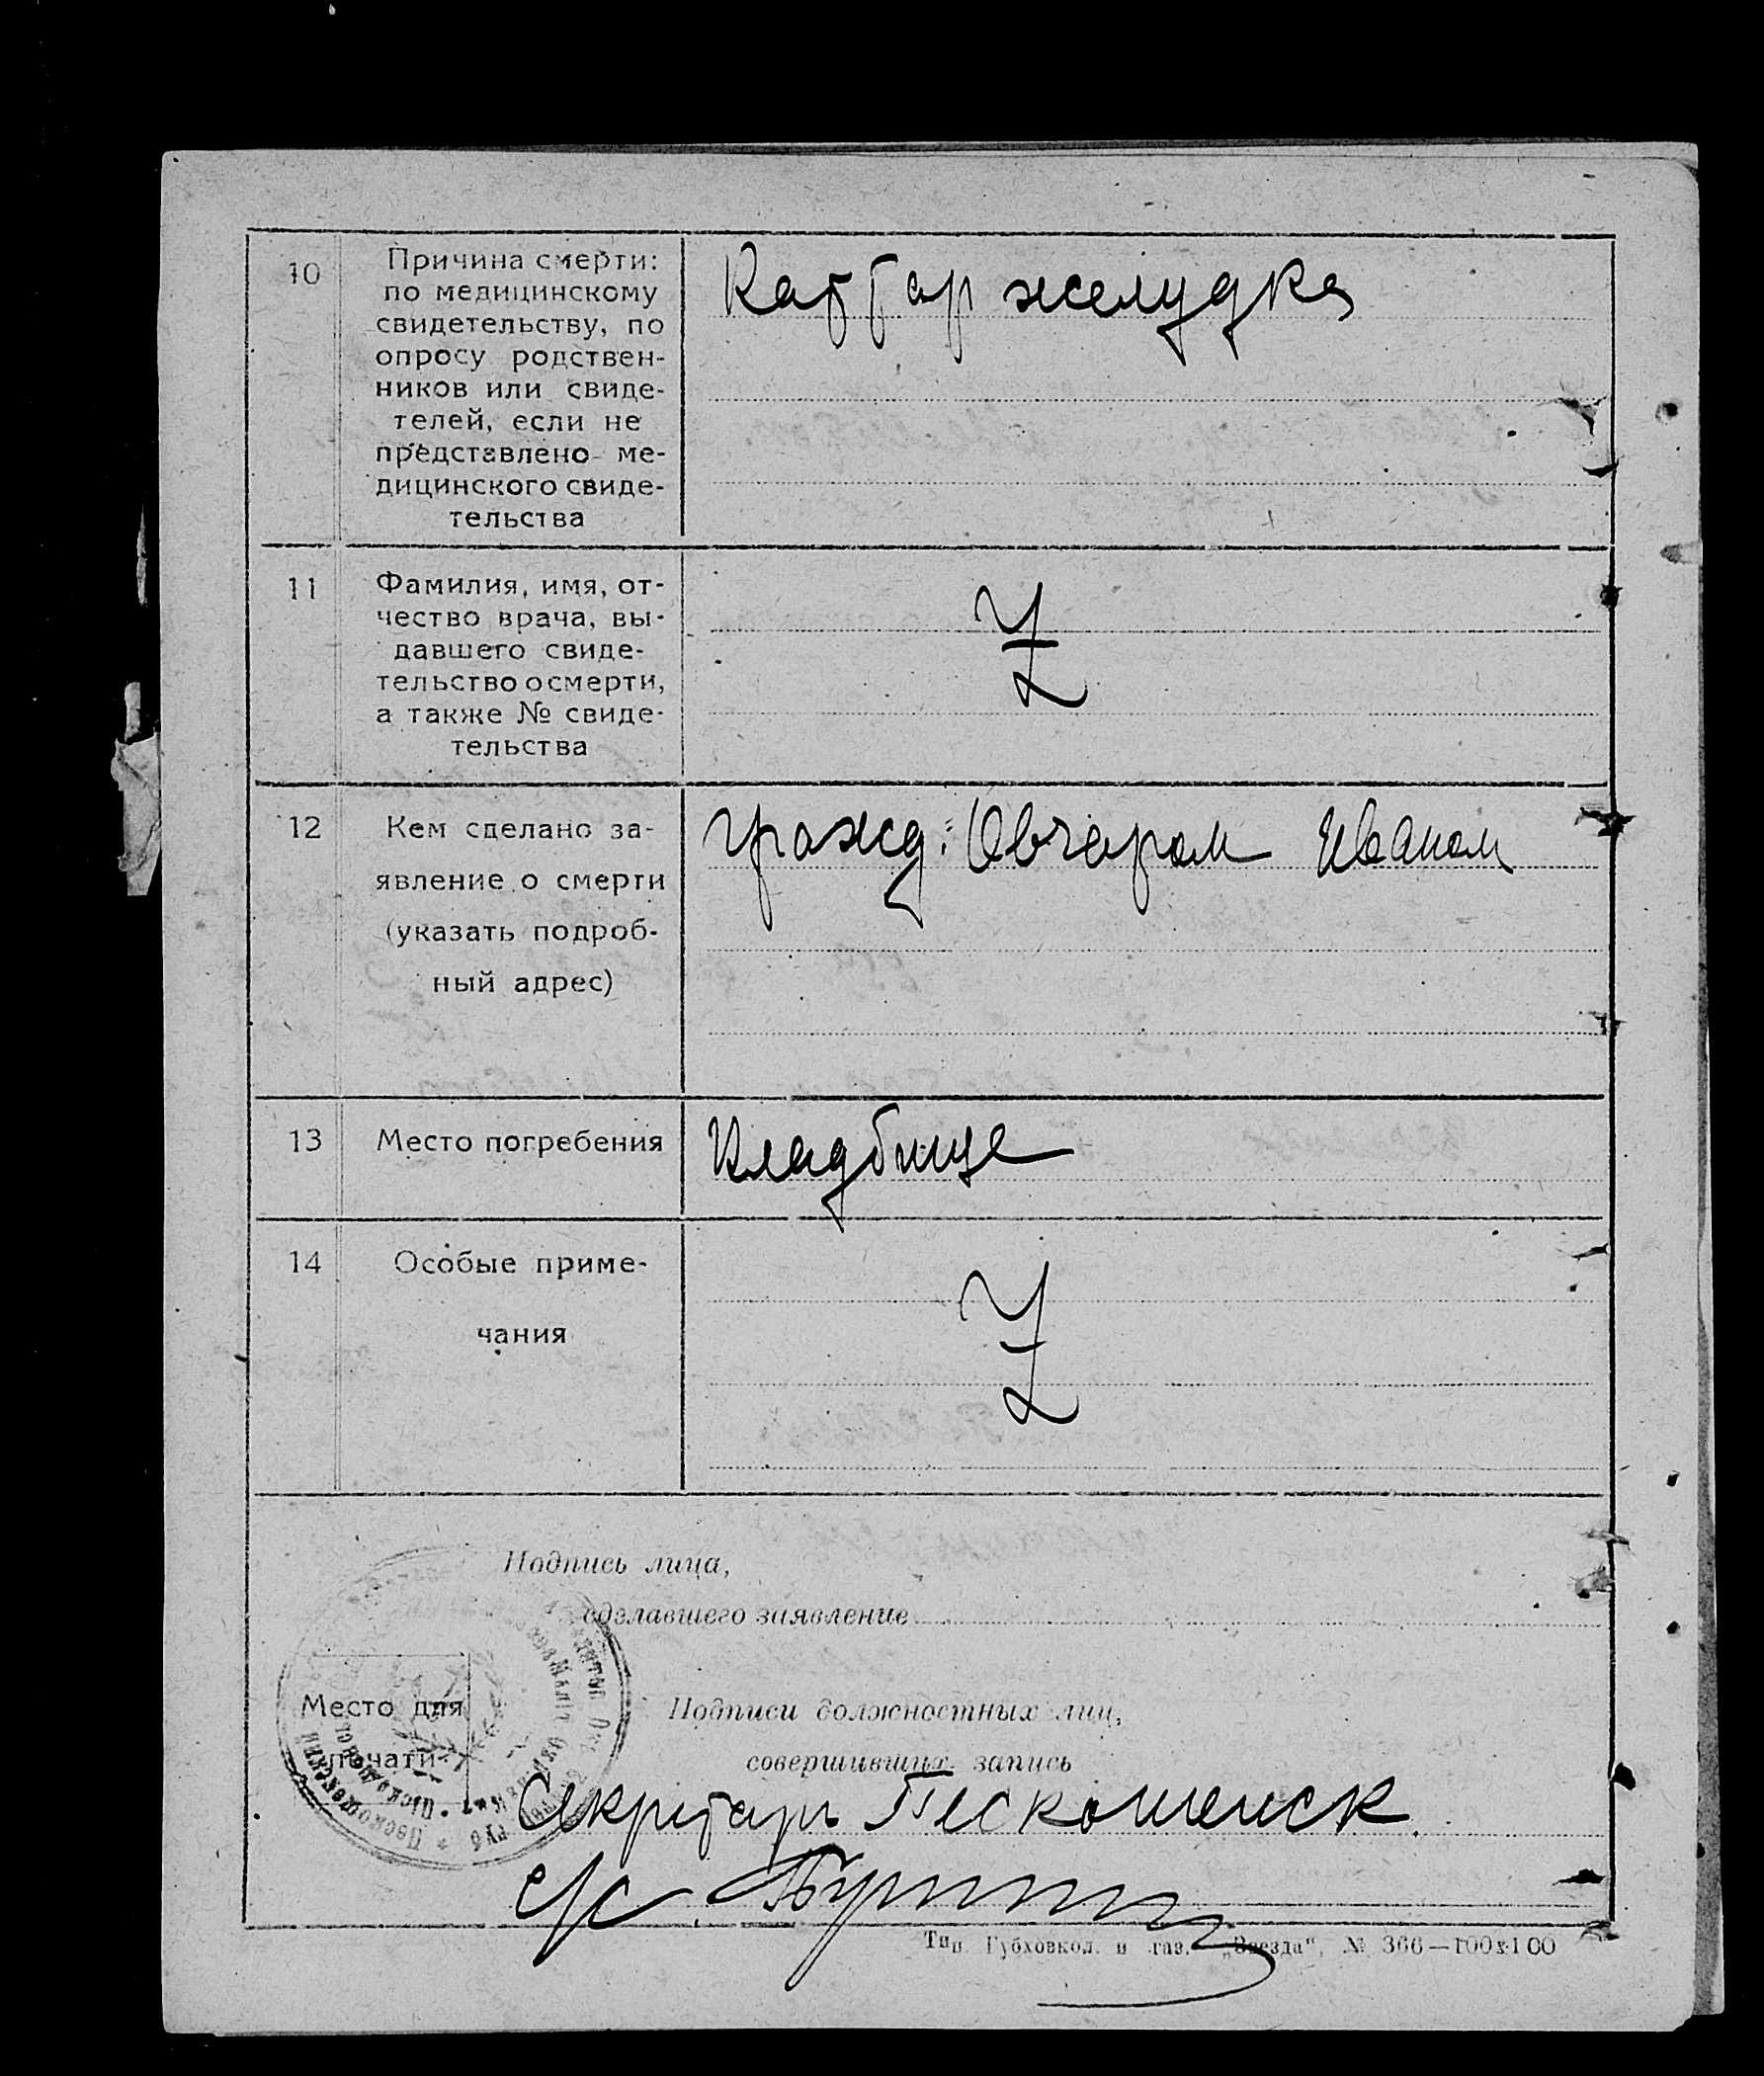 10
Причина смерти:
по медицинскому
свидетельству, по
опросу родствен-
ников или свиде-
телей, если не
представлено ме-
дицинского свиде-
тельства
Каттар желудка
11
Фамилия, имя, от-
чество врача, вы-
давшего свиде-
тельство о смерти,
а также № свиде-
тельства
12
Кем сделано за-
явление о смерти
(указать подроб-
ный адрес)
гражд: Овчаром Иваном
13
Место погребения
Кладбище
14
Особые приме-
чания
Подпись лица,
сделавшего заявление
Место для
печати
Подписи должностных лиц,
совершивших запись
Секретарь Пескошенск.
с/с
Тип. Губховкол. и газ. „Звезда“, № 366—100х100